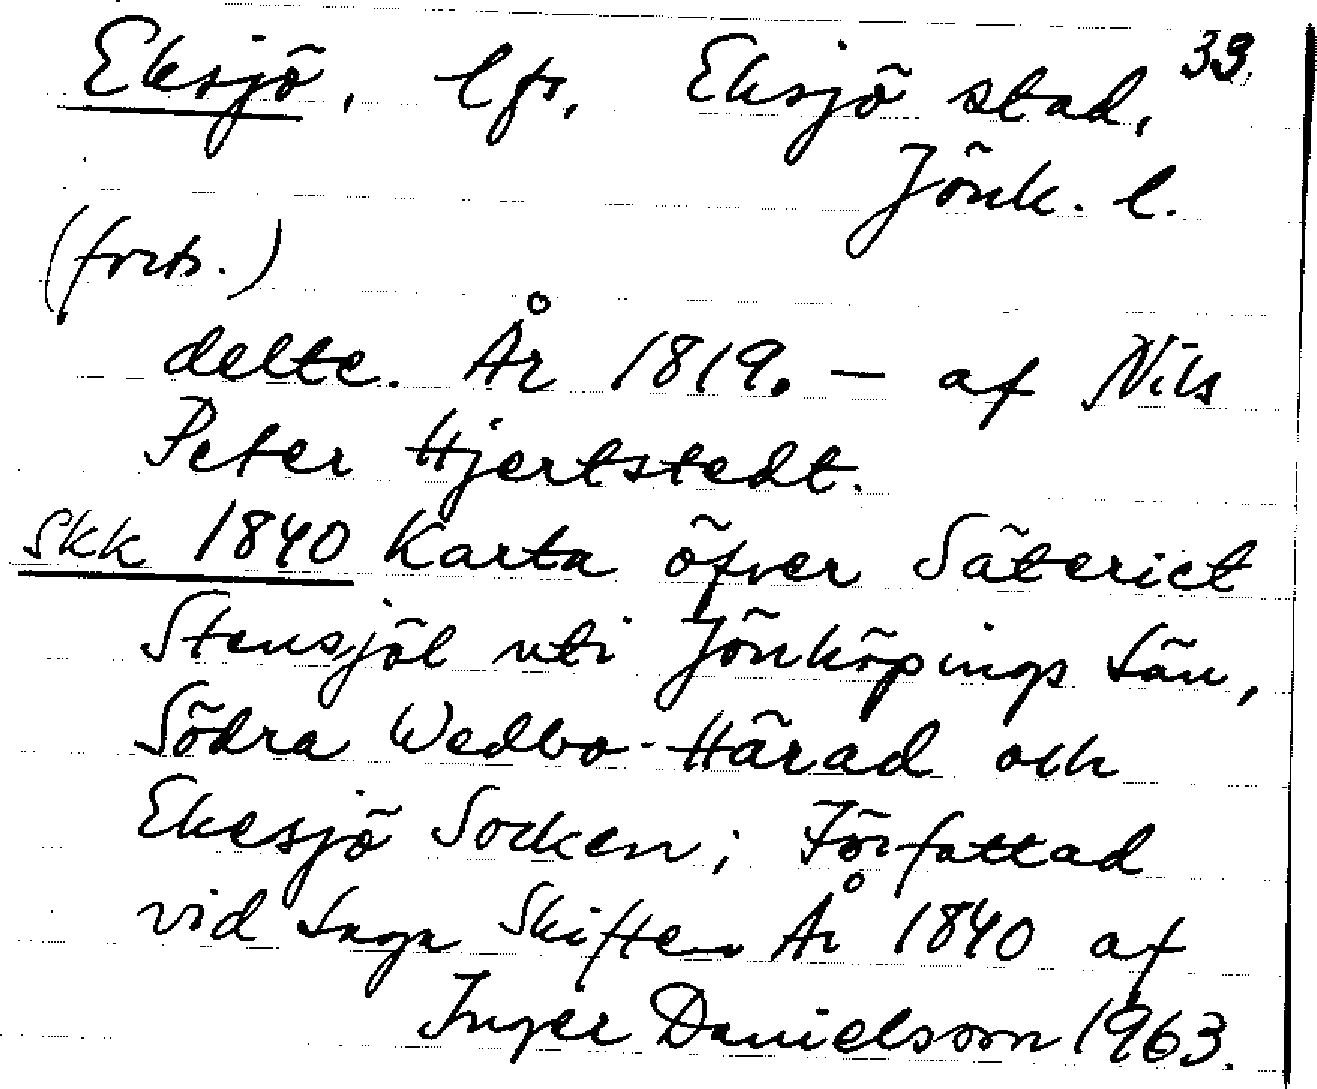 Eksjö, lfs, Eksjö stad, 33.
Jönk. l.
(forts.)
delte. År 1819. — af Nils
Peter Hjertstedt.
Skk 1840 Karta öfver Säteriet
Stensjöl uti Jönköpings Län,
Södra Wedbo-Härad och
Ekesjö Socken; Författad
vid Laga Skiften År 1840 af
Inger Danielsson 1963.